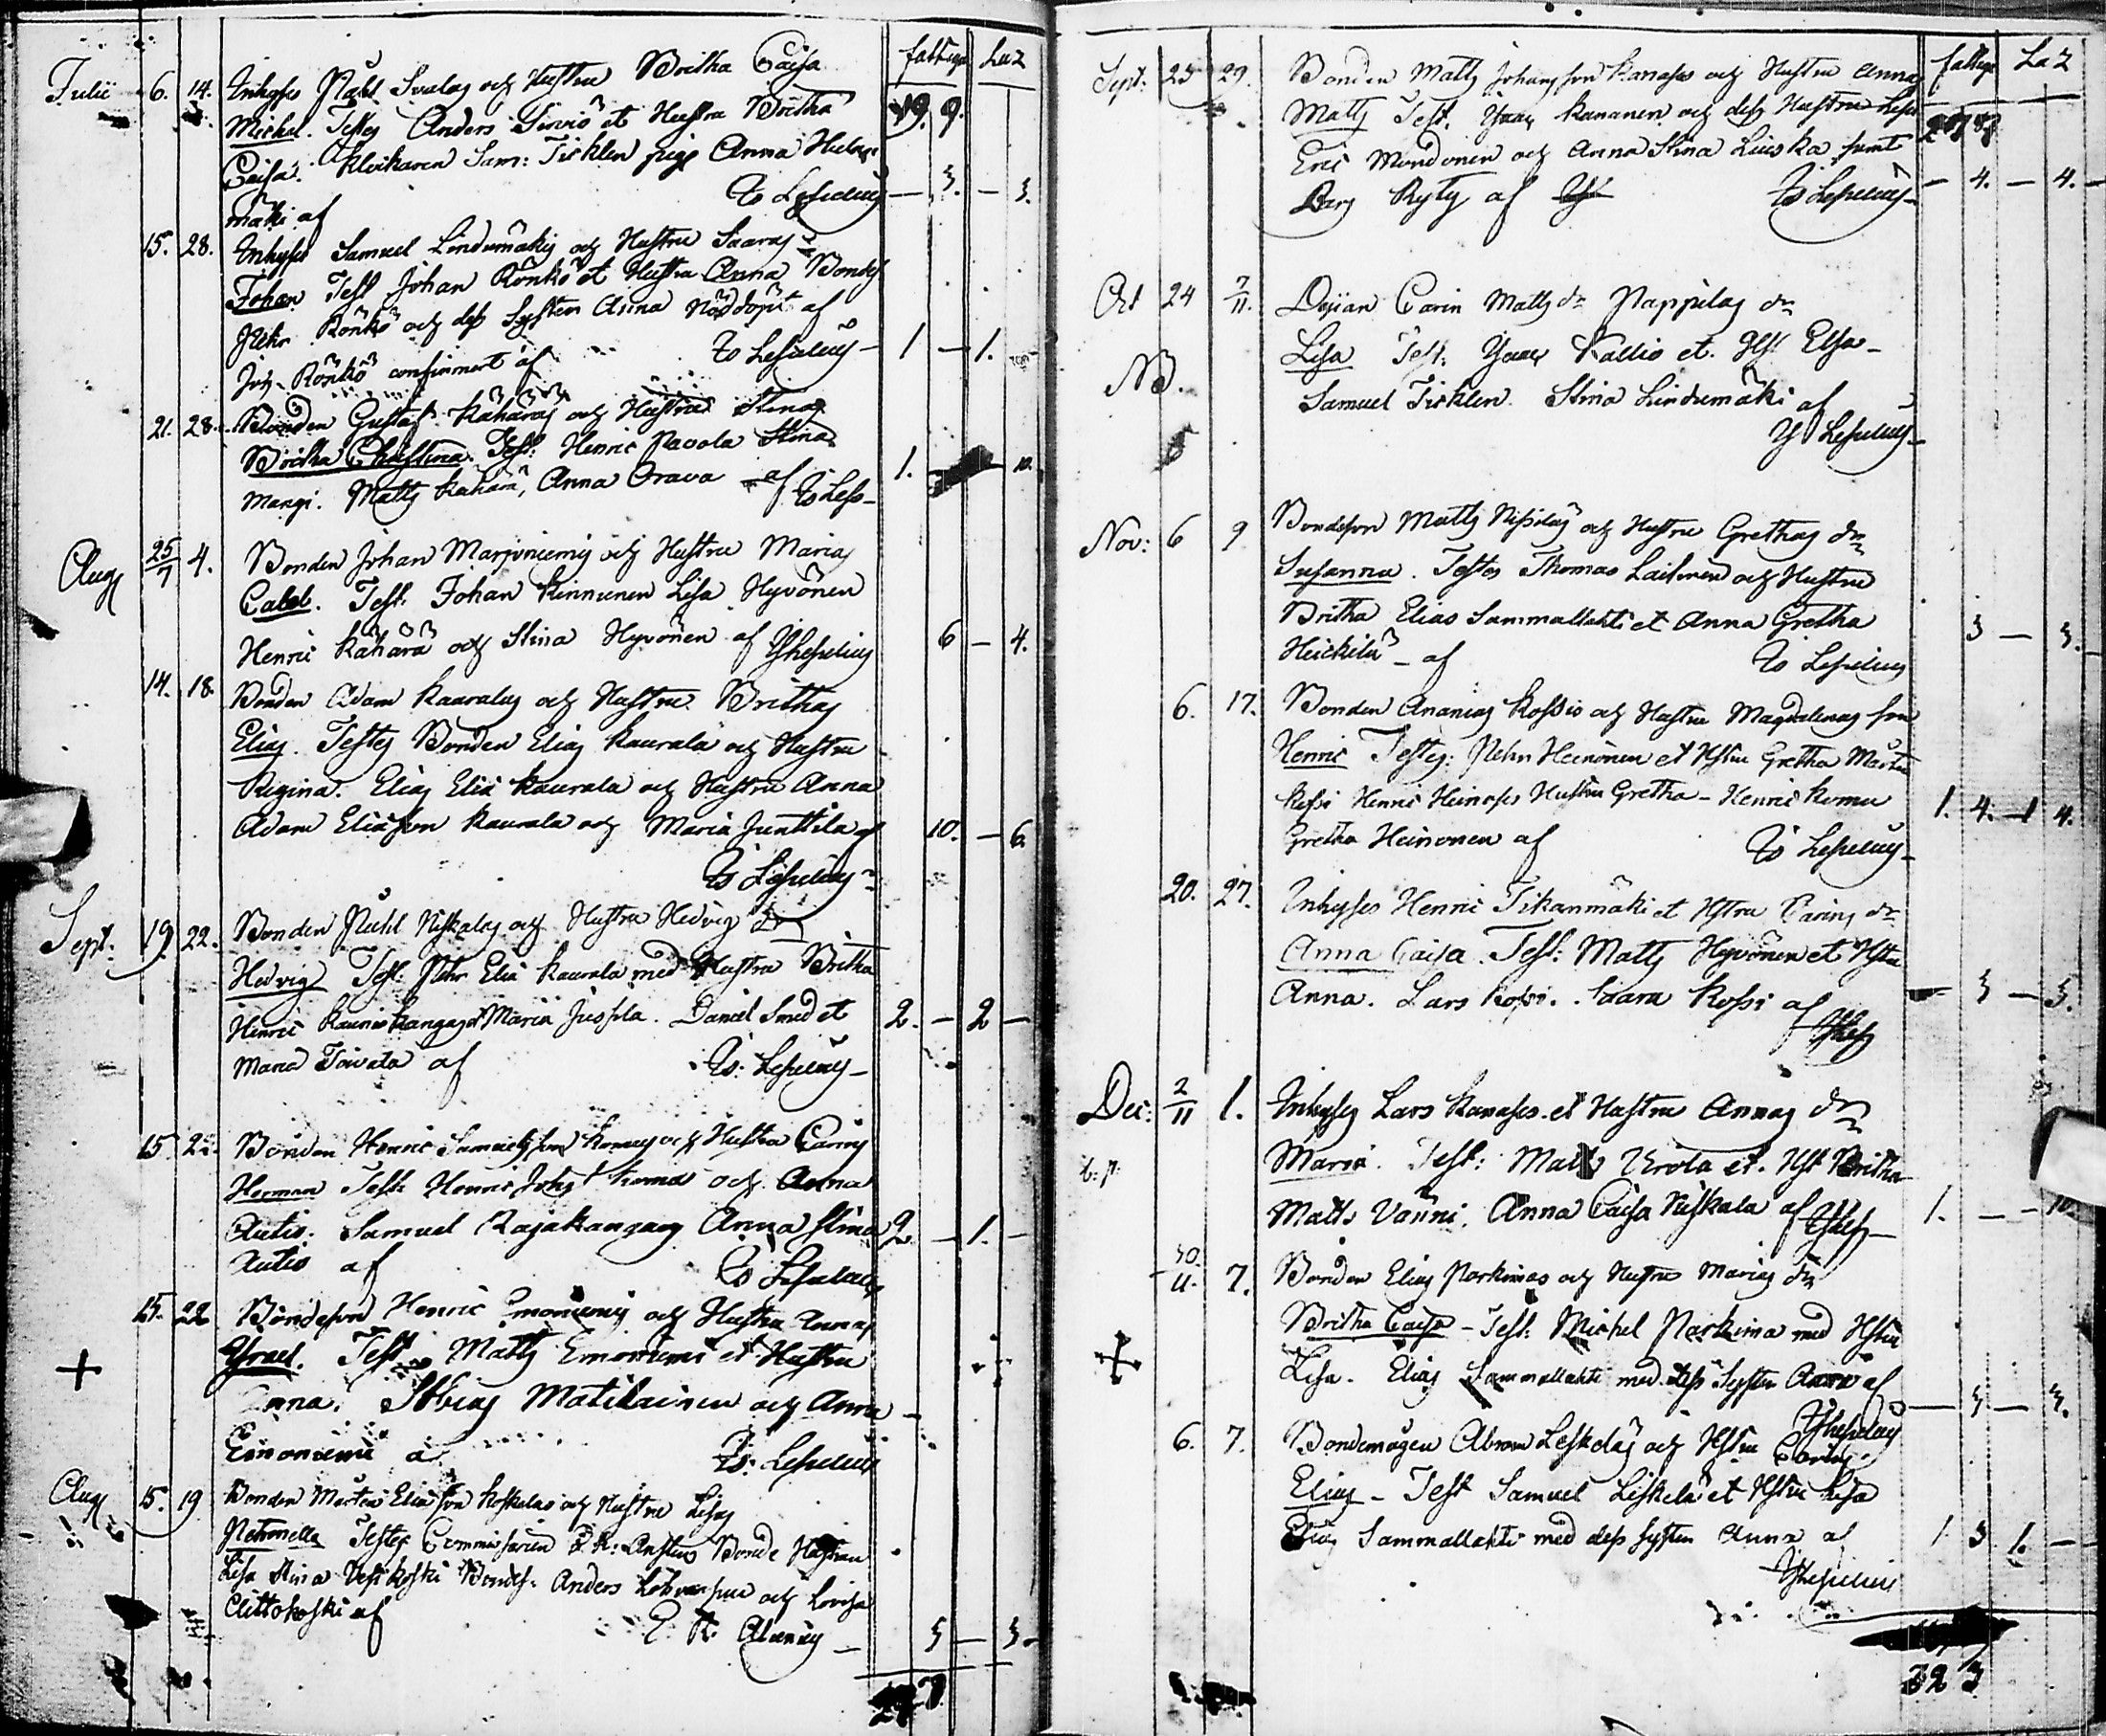 fattiga Laz
Julii 6. 14. Inhyses Påhl Svalas och Hustru Britha Caisa
Michel. Testes Anders Sirviö et Hustru Britha 19. 9.
Caisa. Klockaren Sam: Ticklen pige Anna
mäki af Is Lesselius — 3. — 3.
15. 28. Inhyses Samuel Lindumäkis och Hustru Saaras
Johan Test Johan Rönkö et Hustru Anna Bondes
Pehr Rönkö och dess Syster Anna Nöddöpt af
Joh. Rönkö confirmert af Is Lesselius — 1 — 1.
21. 28. Bonden Gustaf Kähäräs och Hustrus Stinas
Britha Christina. Test: Henric Pavola Stina
Mangi. Matts Kähärä, Anna Orava af Is Less— 1. — 10.
Aug 25/7 4. Bonden Johan Marjoniemis och Hustru Marias
Calel. Test. Johan Kinnunen Lisa Hyvönen
Henric Kähärä och Stina Hyvönen af Is Lesselius 6 — 4.
14. 18. Bonden Adam Kauralas och Hustru Brithas
Elias. Testes Bonden Elias Kaurala och Hustru
Regina. Elias Elia Kaurala och Hustru Anna
Adam Eliasson Kaurala och Maria Junttila af 10. — 6.
Is Lesselius
Sept: 19. 22. Bonden Påhl Niskalas och Hustru Hedvigs dr
Hedvig Test: Pehr Elia Kaurala med Hustru Britha
Henric Kauniskangas et Maria Juopla. Daniel Smed et 2. — 2 —
Maria Toivola af Is: Lesselius —
15 22. Bonden Henric Samuelsson Komus och Hustru Carins
Herman Test: Henric Johs Komu och Anna
Autio. Samuel Rajakangas Anna Stina 2. — 1. —
Autio af Is Lesselius
15. 22 Bondeson Henric Emoniemis och Hustru Annas
+ Israel. Test Matts Emoniemi et Hustru
Anna. Tobias Matilainen och Anna —
Emoniemi a Is: Lesselius
Aug 15. 19 Bonden Mårten Eliasson Koskelas och Hustru Lisas
Petronella Testes Commissarien E. R. Bonde Hustrun
Lisa Stina Vesikoski Bondes: Anders och Lovisa
Clittokoski af E. R. Alcenius — 5 — 3.
27

fattiga Laz
Sept: 23 29. Bonden Matts Johansson Kanases och Hustru Annas
Matts Test. Isaac Kananen och dess Hustru Lisa
Eric Mondonen och Anna Stina Liuska samt
Lars Ryty af Is Lesselius — 4. — 4. —
Oct 24 7/11. Pigan Carin Matts dr Pappilas dr
Lisa Test: Isaac Kallio et. Hst Elsa —
NB. Samuel Ticklen Stina Lindumäki af
Is Lesselius —
Nov: 6 9 Bondeson Matts och Hustru Grethas dr
Susanna. Testes Thomas Laitinen och Hustru
Britha Elias Sammallahti et Anna Gretha
Heickilä — af Is Lesselius 3 — 3.
6. 17. Bonden Ananias Kossio och Hustru Magdalenas son
Henric Testes: Pehr Heinonen et Hstru Gretha Mårten
Kossi Henric Heinoses Hustru Gretha — Henric Komu 1. 4. — 1 4.
Gretha Heinonen af Is Lesselius —
20. 27. Inhyses Henric Tikanmäki et Hstru Carins dr
Anna Caisa. Test: Matts Hyvönen et Hstru
Anna. Lars Kossi. Saara Kossi af — 3 — 3.
Is Less
Dec: 2/11 1. Inhyses Lars Kanases et Hustru Annas dr
Maria. Test: Matts Urola et. Hst Britha
Matts Vänni. Anna Caisa Niskala af Is Less— 1. — — 10.
30./11. 7. Bonden Elias Parkimas och Hustru Marias dr
Britha Caisa — Test: Michel Parkima med Hstru
+ Lisa. Elias Sammallahti med dess Syster Anna af
Is Lesselius — 3 — 3.
6. 7. Bondemågen Abram Leskeläs och Hstru Carins
Elias — Test Samuel Leskelä et Hstru Lisa
Elias Sammallahti med dess Syster Anna af 1 3 1. —
Is Lesselius
32 3